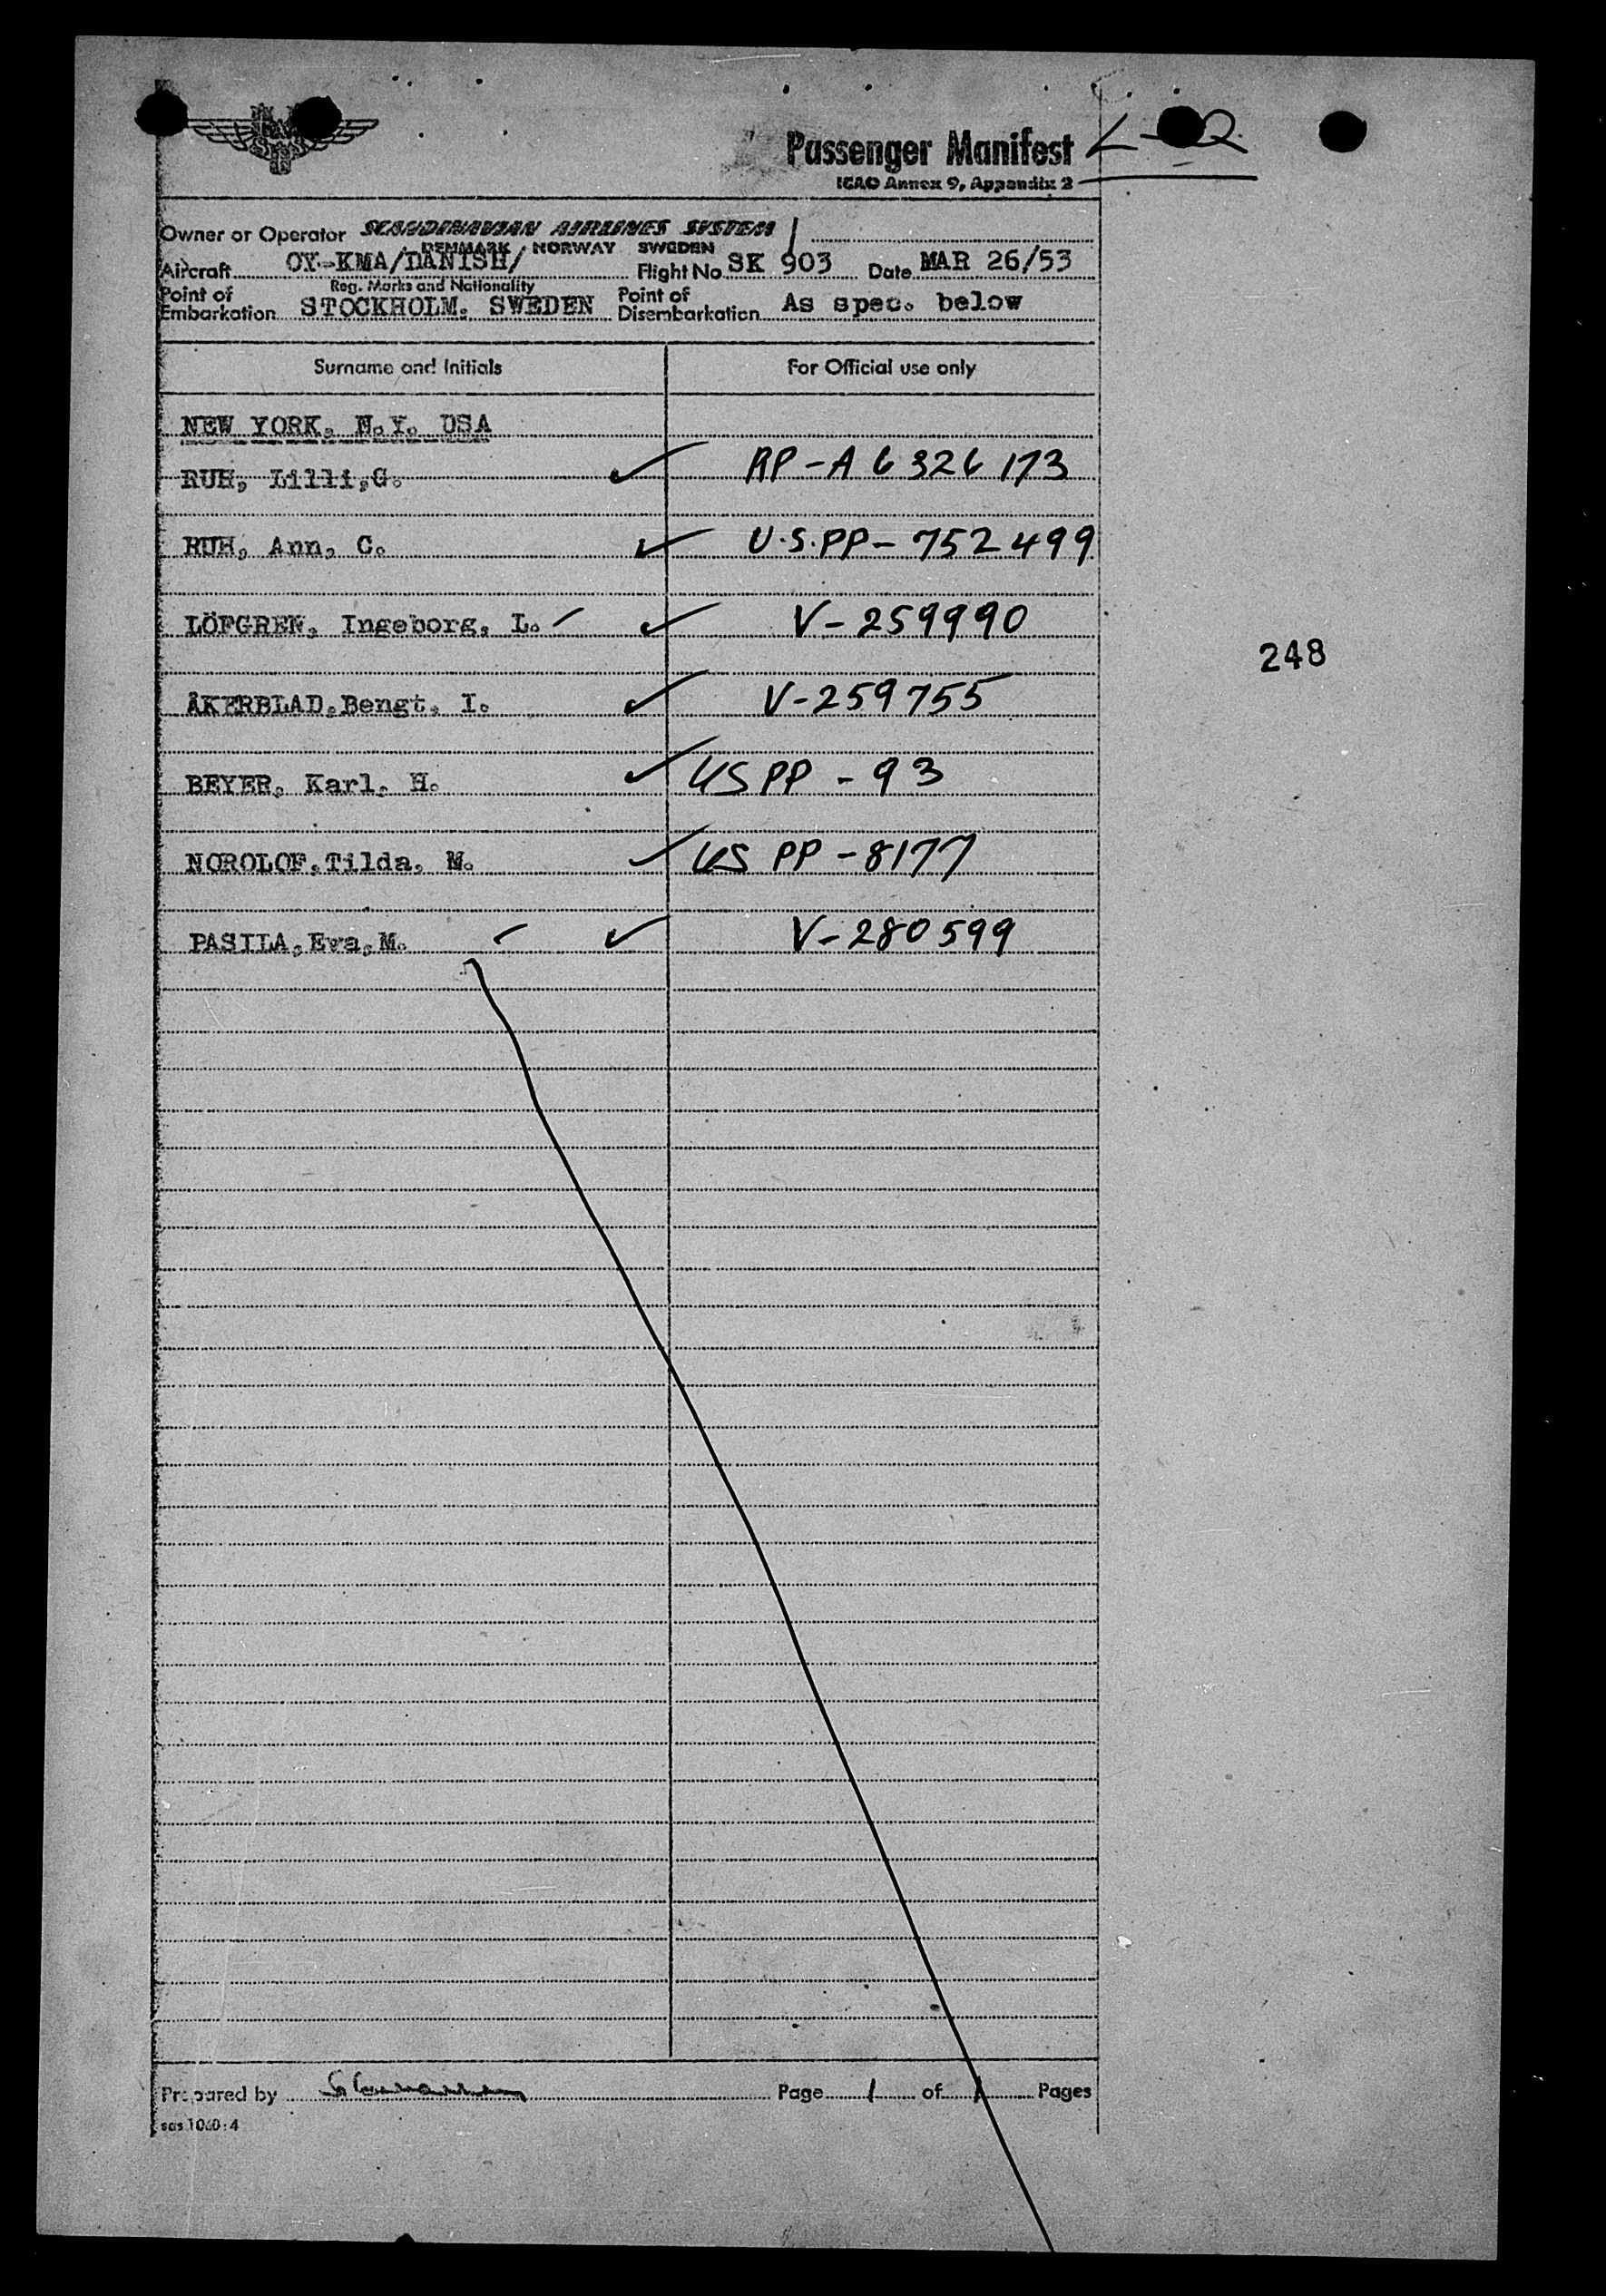 Passenger Manifest
ICAO Annex 9, Appendix 2
Owner or Operator SCANDINAVIAN AIRLINES SYSTEM
DENMARK NORWAY SWEDEN
Aircraft OY-KMA/DANISH/ Flight No. SK 903 Date MAR 26/53
Reg. Marks and Nationality
Point of Embarkation STOCKHOLM, SWEDEN Point of Disembarkation As spec. below
Surname and Initials For Official use only
NEW YORK, N.Y. USA
RUH, Lilli,G. RP-A6326173
RUH, Ann, C. U.S.PP-752499
LÖFGREN, Ingeborg, L. V-259990
248
ÅKERBLAD,Bengt, I. V-259755
BEYER, Karl, H. US PP-93
NOROLOF,Tilda, M. US PP-8177
PASILA,Eva,M. V-280599
Prepared by Page 1 of 1 Pages
sas 1060:4